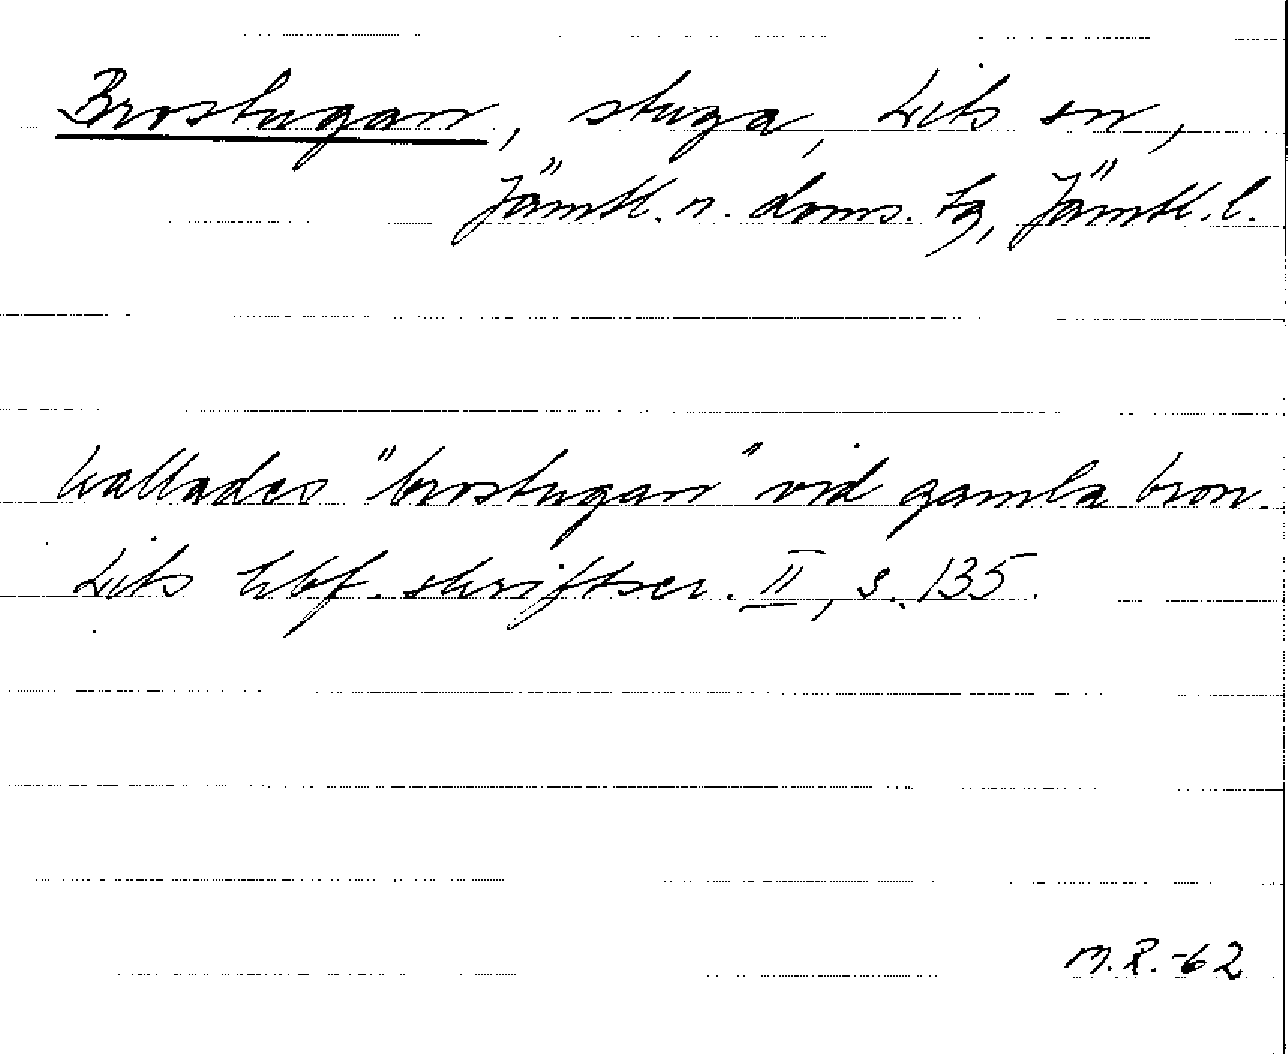 Brostugan, stuga, Lits sn,
Jämtl. n. doms. tg, Jämtl. l.
kallades "brostugan" vid gamla bron.
Lits hbf. skriftser. II, s. 135.
M.R.-62